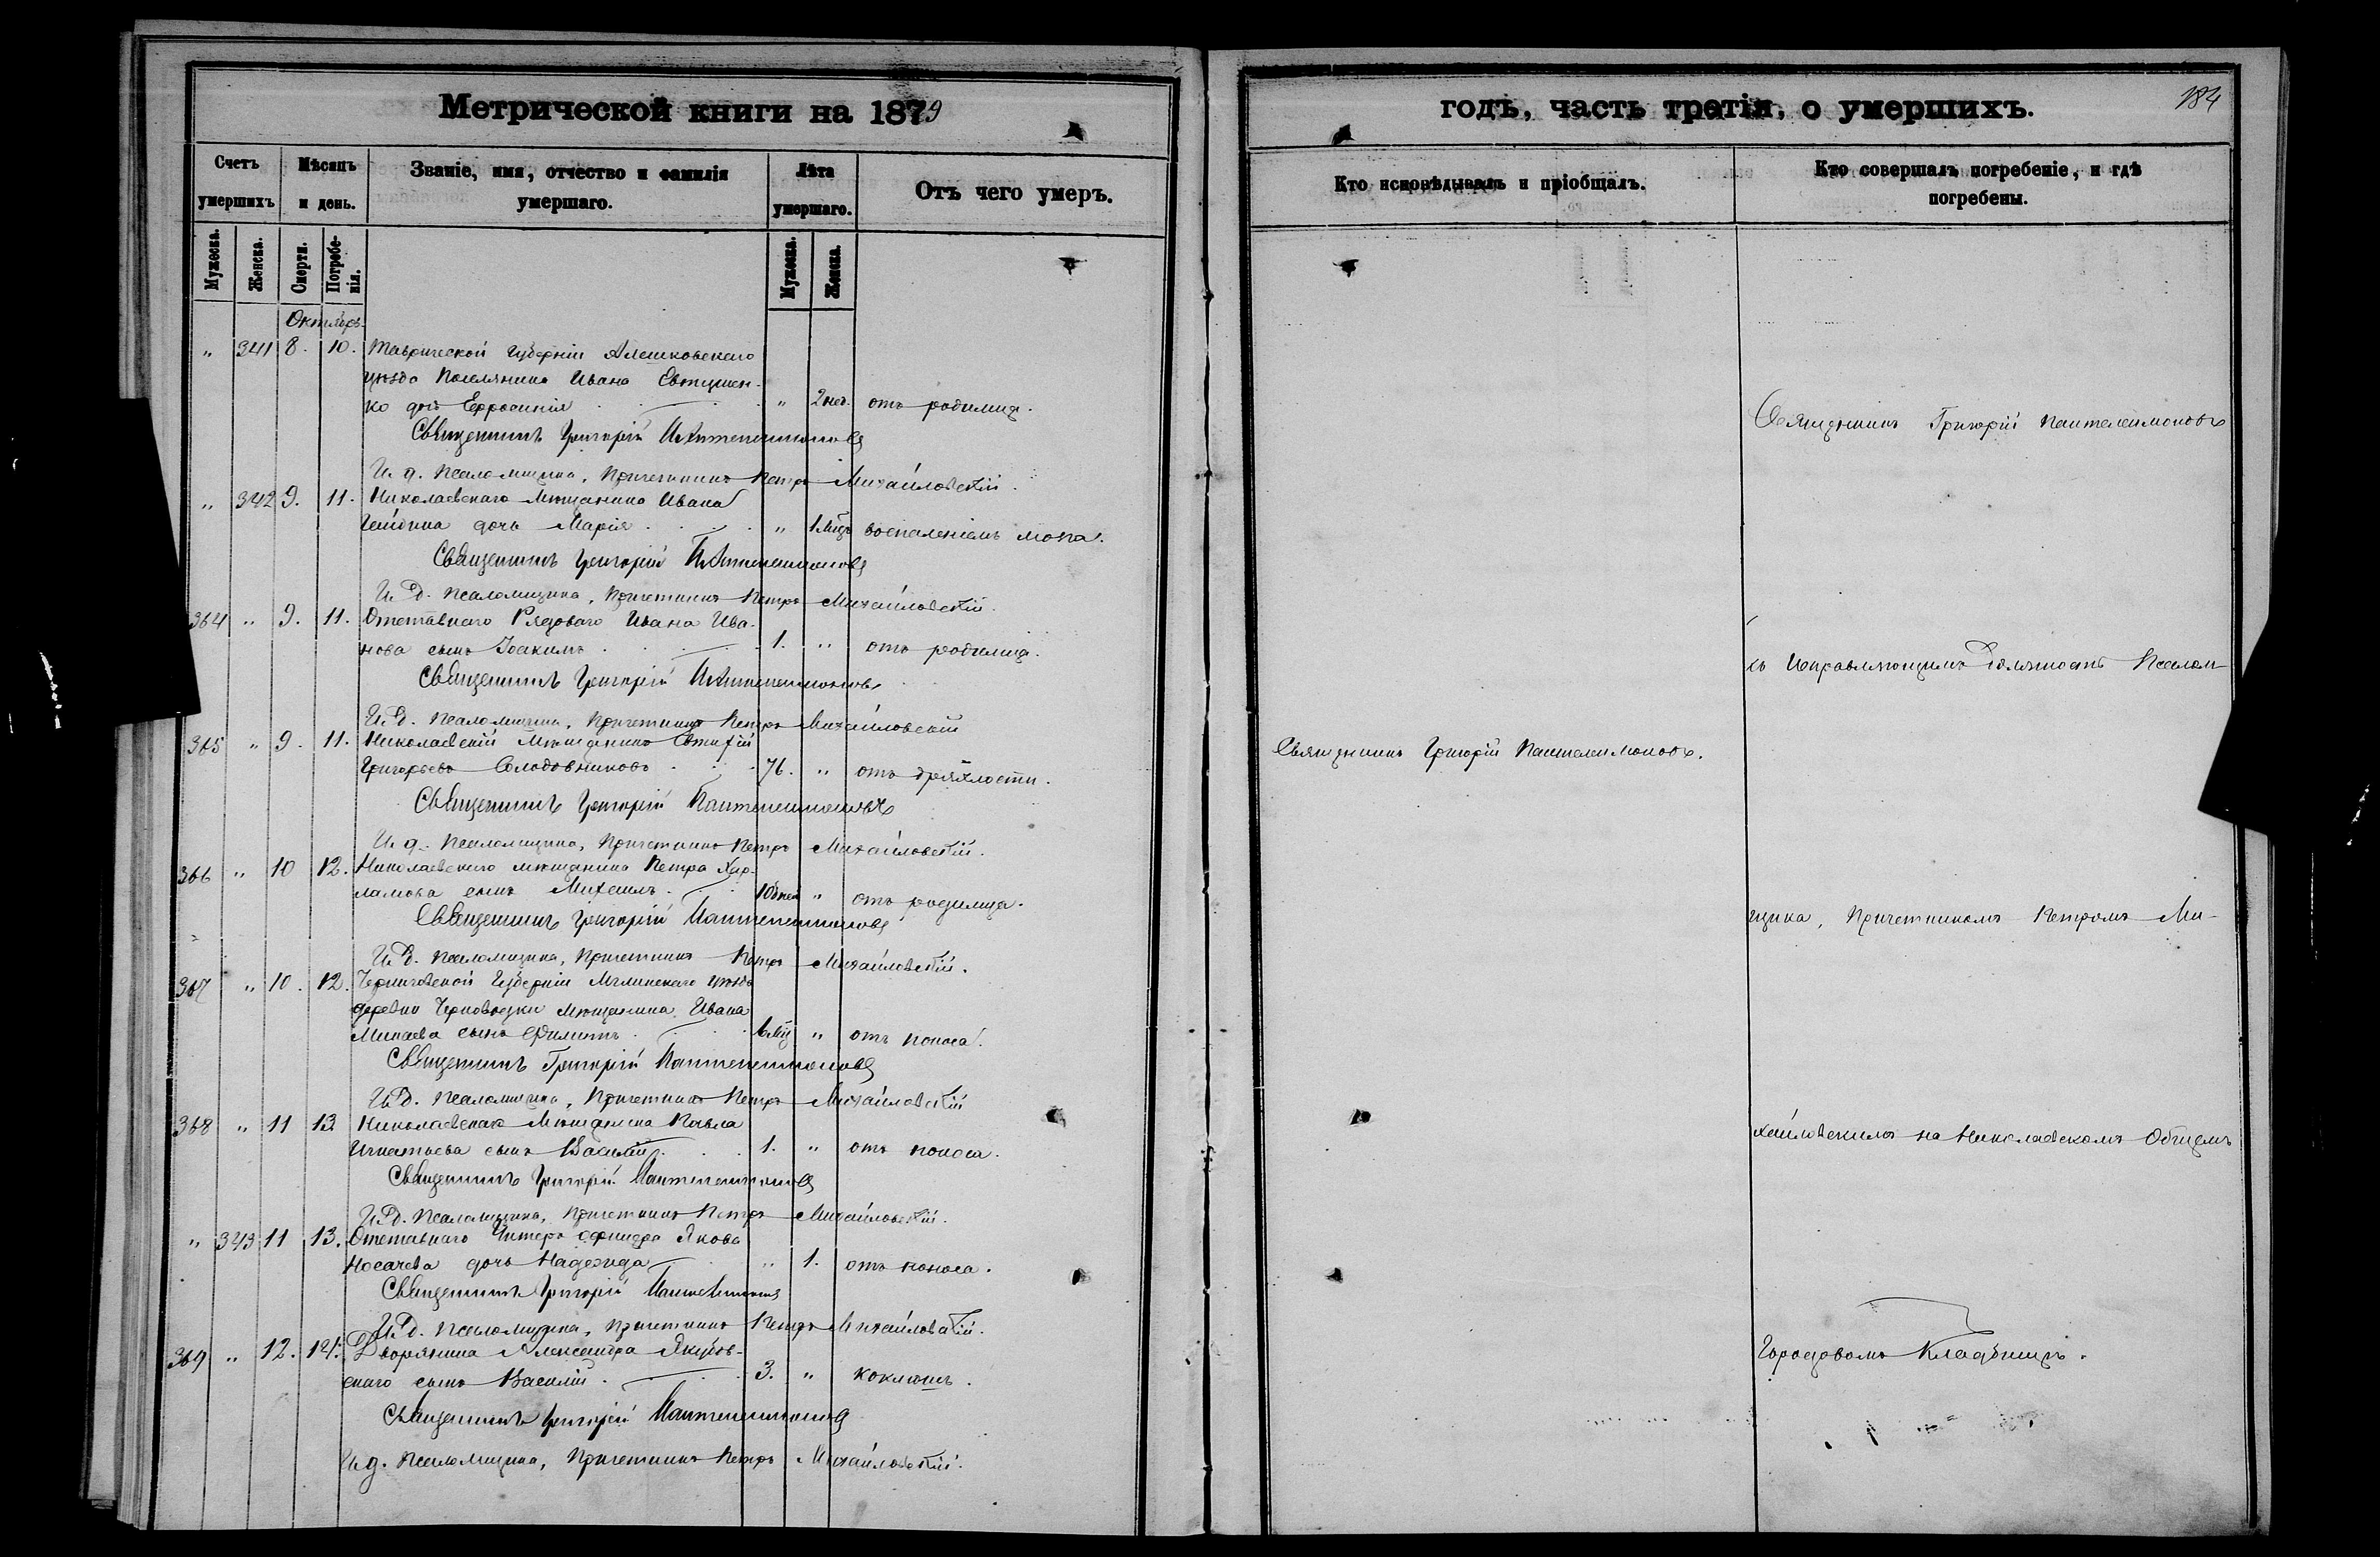 Метрической книги на 1879
годъ, часть третія, о умершихъ.
184
Счетъ умершихъ
Мѣсяцъ и день.
Званіе, имя, отчество и фамилія умершаго.
Лѣта умершаго.
Отъ чего умеръ.
Кто исповѣдывалъ и пріобщалъ.
Кто совершалъ погребеніе, и гдѣ погребены.
Мужеска.
Женска.
Смерти.
Погребенія.
Мужеска.
Женска.
Октябрь.
" 341 8. 10. Таврической Губерніи Алешковскаго
уѣзда Поселянина Ивана Евтушен-
ко дочь Ефросинія " 2 нед. отъ родимца.
Священникъ Григорій Пантелеимоновъ
И. д. Псаломщика, Причетникъ Петръ Михайловскій.
" 342 9. 11. Николаевскаго Мѣщанина Ивана
дочь Марія " 1 мѣц. воспаленіемъ мозга.
Священникъ Григорій Пантелеимоновъ
И. д. Псаломщика, Причетникъ Петръ Михайловскій.
364 " 9. 11. Отставнаго Рядоваго Ивана Ива-
нова сынъ Іоакимъ 1. " отъ родимца.
Священникъ Григорій Пантелеимоновъ
И. д. Псаломщика, Причетникъ Петръ Михайловскій
365 " 9. 11. Николаевскій Мѣщанинъ Евтихій
Григорьевъ Солодовниковъ 76. " отъ дряхлости.
Священникъ Григорій Пантелеимоновъ
И. д. Псаломщика, Причетникъ Петръ Михайловскій.
366 " 10 12. Николаевскаго мѣщанина Петра Хар-
ламова сынъ Михаилъ 10 дней " отъ родимца.
Священникъ Григорій Пантелеимоновъ
И. д. Псаломщика, Причетникъ Петръ Михайловскій.
367 " 10. 12. Черниговской Губерніи Мглинскаго уѣзда
деревни Мѣщанина Ивана
Минаева сынъ Филиппъ " отъ поноса.
Священникъ Григорій Пантелеимоновъ
И. д. Псаломщика, Причетникъ Петръ Михайловскій
368 " 11 13 Николаевскаго Мѣщанина Павла
Игнатьева сынъ Василій 1. " отъ поноса.
Священникъ Григорій Пантелеимоновъ
И. д. Псаломщика, Причетникъ Петръ Михайловскій.
" 343 11 13. Отставнаго Унтеръ офицера Якова
Носачева дочь Надежда " 1. отъ поноса.
Священникъ Григорій Пантелеимоновъ
И. д. Псаломщика, Причетникъ Петръ Михайловскій.
369 " 12. 14. Дворянина Александра Якубов-
скаго сынъ Василій 3. " коклюшъ.
Священникъ Григорій Пантелеимоновъ
И. д. Псаломщика, Причетникъ Петръ Михайловскій.
Священникъ Григорій Пантелеимоновъ.
Священникъ Григорій Пантелеимоновъ
съ Исправляющимъ Должность Псалом-
щика, Причетникомъ Петромъ Ми-
хайловскимъ на Николаевскомъ Общемъ
Городовомъ Кладбищѣ.